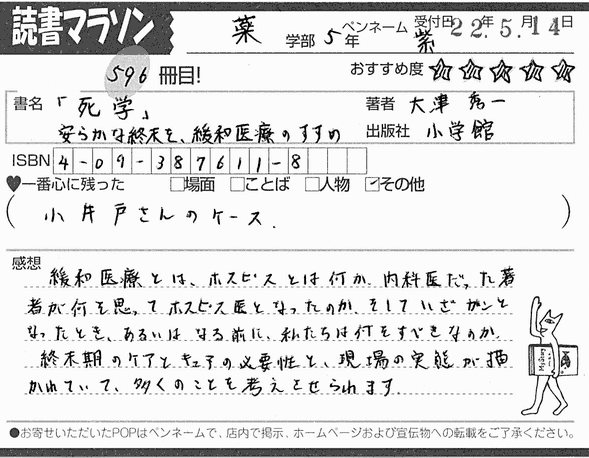 読書マラソン
薬 学部 5年 ペンネーム 紫 受付日 22年5.月14日
596 冊目!
おすすめ度 ☆☆☆☆☆
書名 「死学」 著者 大津 秀一
安らかな終末を、緩和医療のすすめ 出版社 小学館
ISBN 4-09-387611-8
♥一番心に残った □場面 □ことば □人物 ☑その他
( 小井戸さんのケース. )
感想
緩和医療とは、ホスピスとは何か、内科医だった著
者が何を思ってホスピス医となったのか、そしていざガンと
なったとき、あるいは なる前に、私たちは何をすべきなのか.
終末期のケアとキュアの必要性と、現場の実態が描
かれていて、多くのことを考えさせられます.
●お寄せいただいたPOPはペンネームで、店内で掲示、ホームページおよび宣伝物への転載をご了承ください。